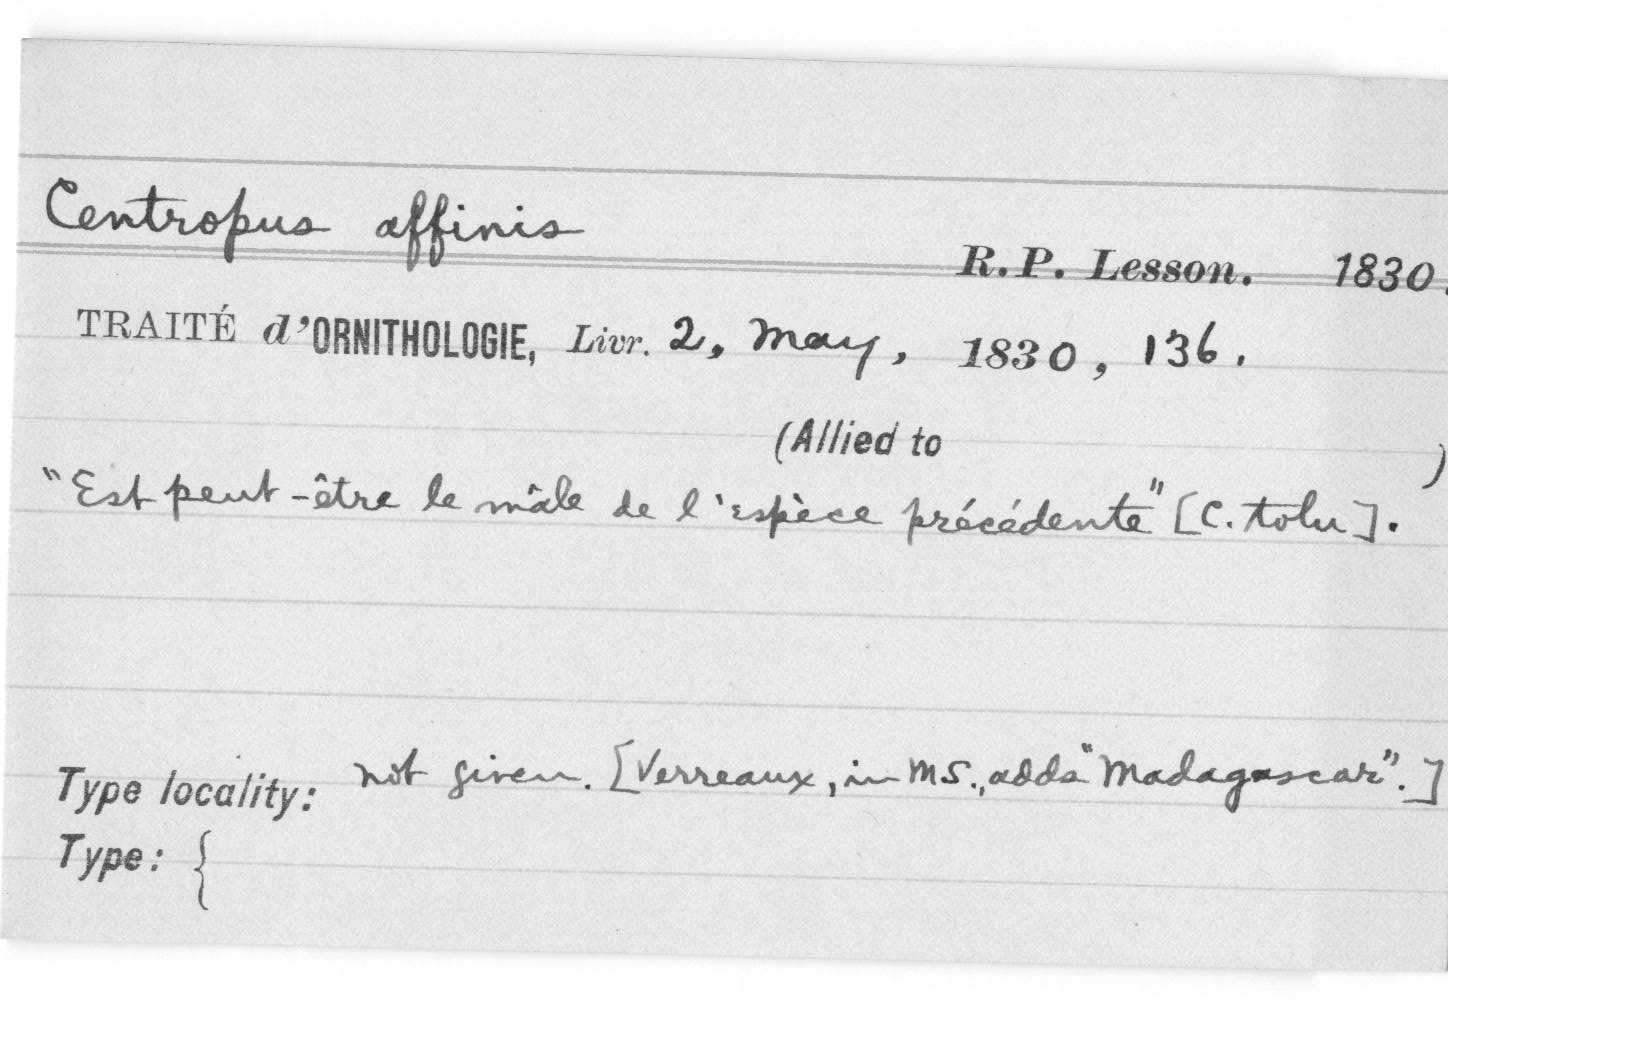 Centropus affinis
R. P. Lesson. 1830.
TRAITÉ d'ORNITHOLOGIE, Livr. 2, May, 1830, 136.
(Allied to )
"Est peut-être le mâle de l'espèce précédente" [C. tolu].
Type locality: not given. [Verreaux, in MS., adds "Madagascar".]
Type: {